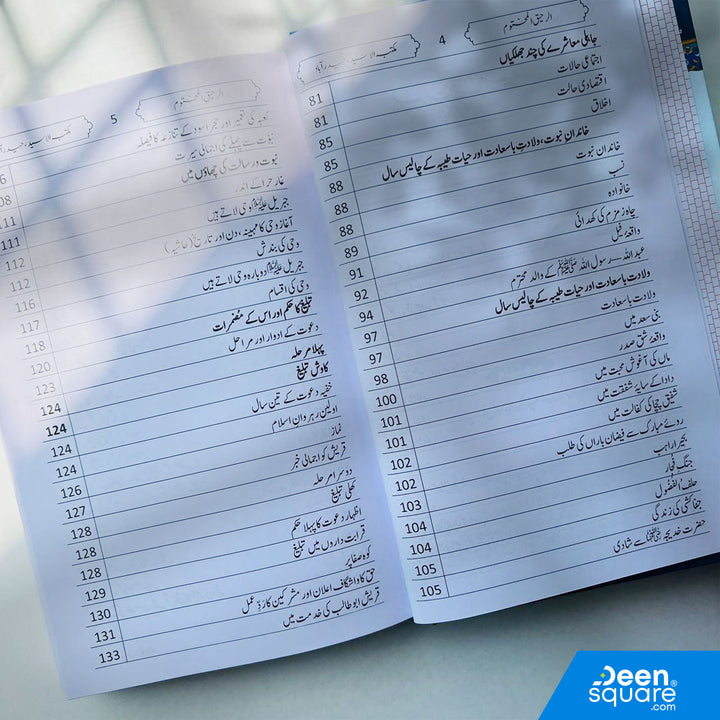 الرحیق المختوم
4
مکتبۃ الاسید، حیدرآباد
جاہلی معاشرے کی چند جھلکیاں
اجتماعی حالات 81
اقتصادی حالت 81
اخلاق 85
خاندانِ نبوت، ولادت باسعادت اور حیات طیبہ کے چالیس سال 85
خاندان نبوت 88
نسب 88
خانوادہ 88
چاہ زمزم کی کھدائی 89
واقعۂ فیل 91
عبد اللہ — رسول اللہ ﷺ کے والد محترم 92
ولادت باسعادت اور حیات طیبہ کے چالیس سال 94
ولادت باسعادت 97
بنی سعد میں 97
واقعۂ شق صدر 98
ماں کی آغوش محبت میں 100
دادا کے سایۂ شفقت میں 101
شفیق چچا کی کفالت میں 101
روئے مبارک سے فیضان باراں کی طلب 102
بحیرا راہب 102
جنگ فجار 103
حلف الفضول 104
جفاکشی کی زندگی 104
حضرت خدیجہ رضی اللہ عنہا سے شادی 105
105
الرحیق المختوم
5
مکتبۃ الاسید، حیدرآباد
کعبہ کی تعمیر اور حجر اسود کے تنازعہ کا فیصلہ
نبوت سے پہلے کی اجمالی سیرت
نبوت و رسالت کی چھاؤں میں
غار حرا کے اندر 111
جبریل علیہ السلام وحی لاتے ہیں 111
آغاز وحی کا مہینہ، دن اور تاریخ (حاشیہ) 112
وحی کی بندش 112
جبریل علیہ السلام دوبارہ وحی لاتے ہیں 116
وحی کی اقسام 117
تبلیغ کا حکم اور اس کے مضمرات 118
دعوت کے ادوار اور مراحل 120
پہلا مرحلہ 123
کاوش تبلیغ 124
خفیہ دعوت کے تین سال 124
اولین رہروان اسلام 124
نماز 124
قریش کو اجمالی خبر 126
دوسرا مرحلہ 127
کھلی تبلیغ 128
اظہار دعوت کا پہلا حکم 128
قرابت داروں میں تبلیغ 128
کوہ صفا پر 129
حق کا واشگاف اعلان اور مشرکین کا ردّ عمل 130
قریش ابو طالب کی خدمت میں 131
133
Deen
square®
.com